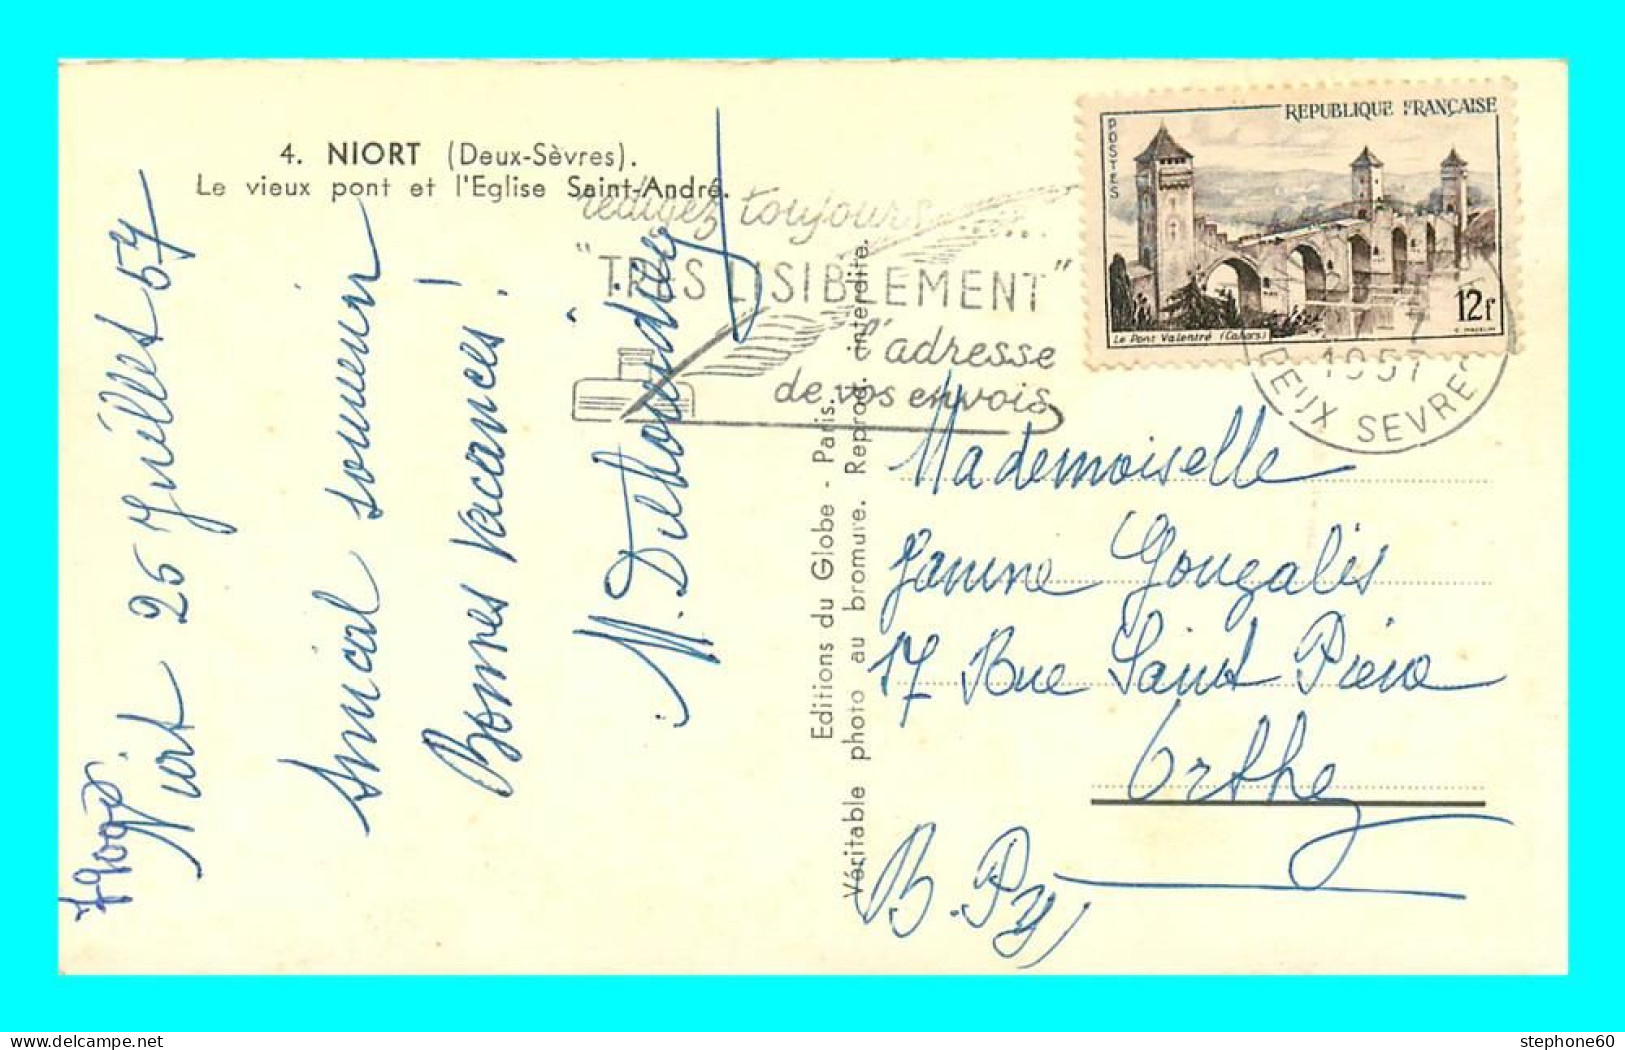 4. NIORT (Deux-Sèvres).
Le vieux pont et l'Eglise Saint-André.
Niort 25 Juillet 57
Amical souvenir
Bonnes Vacances!
79000
rédigez toujours ......
"TRES LISIBLEMENT"
l'adresse
de vos envois
Editions du Globe - Paris.
Véritable photo au bromure. Reprod. interdite.
REPUBLIQUE FRANÇAISE
POSTES
12f
Le Pont Valentré (Cahors)
1957
DEUX SEVRES
Mademoiselle
Janine Gonzalis
17 Rue Saint Pierre
Orthez
B. Py
stephone60